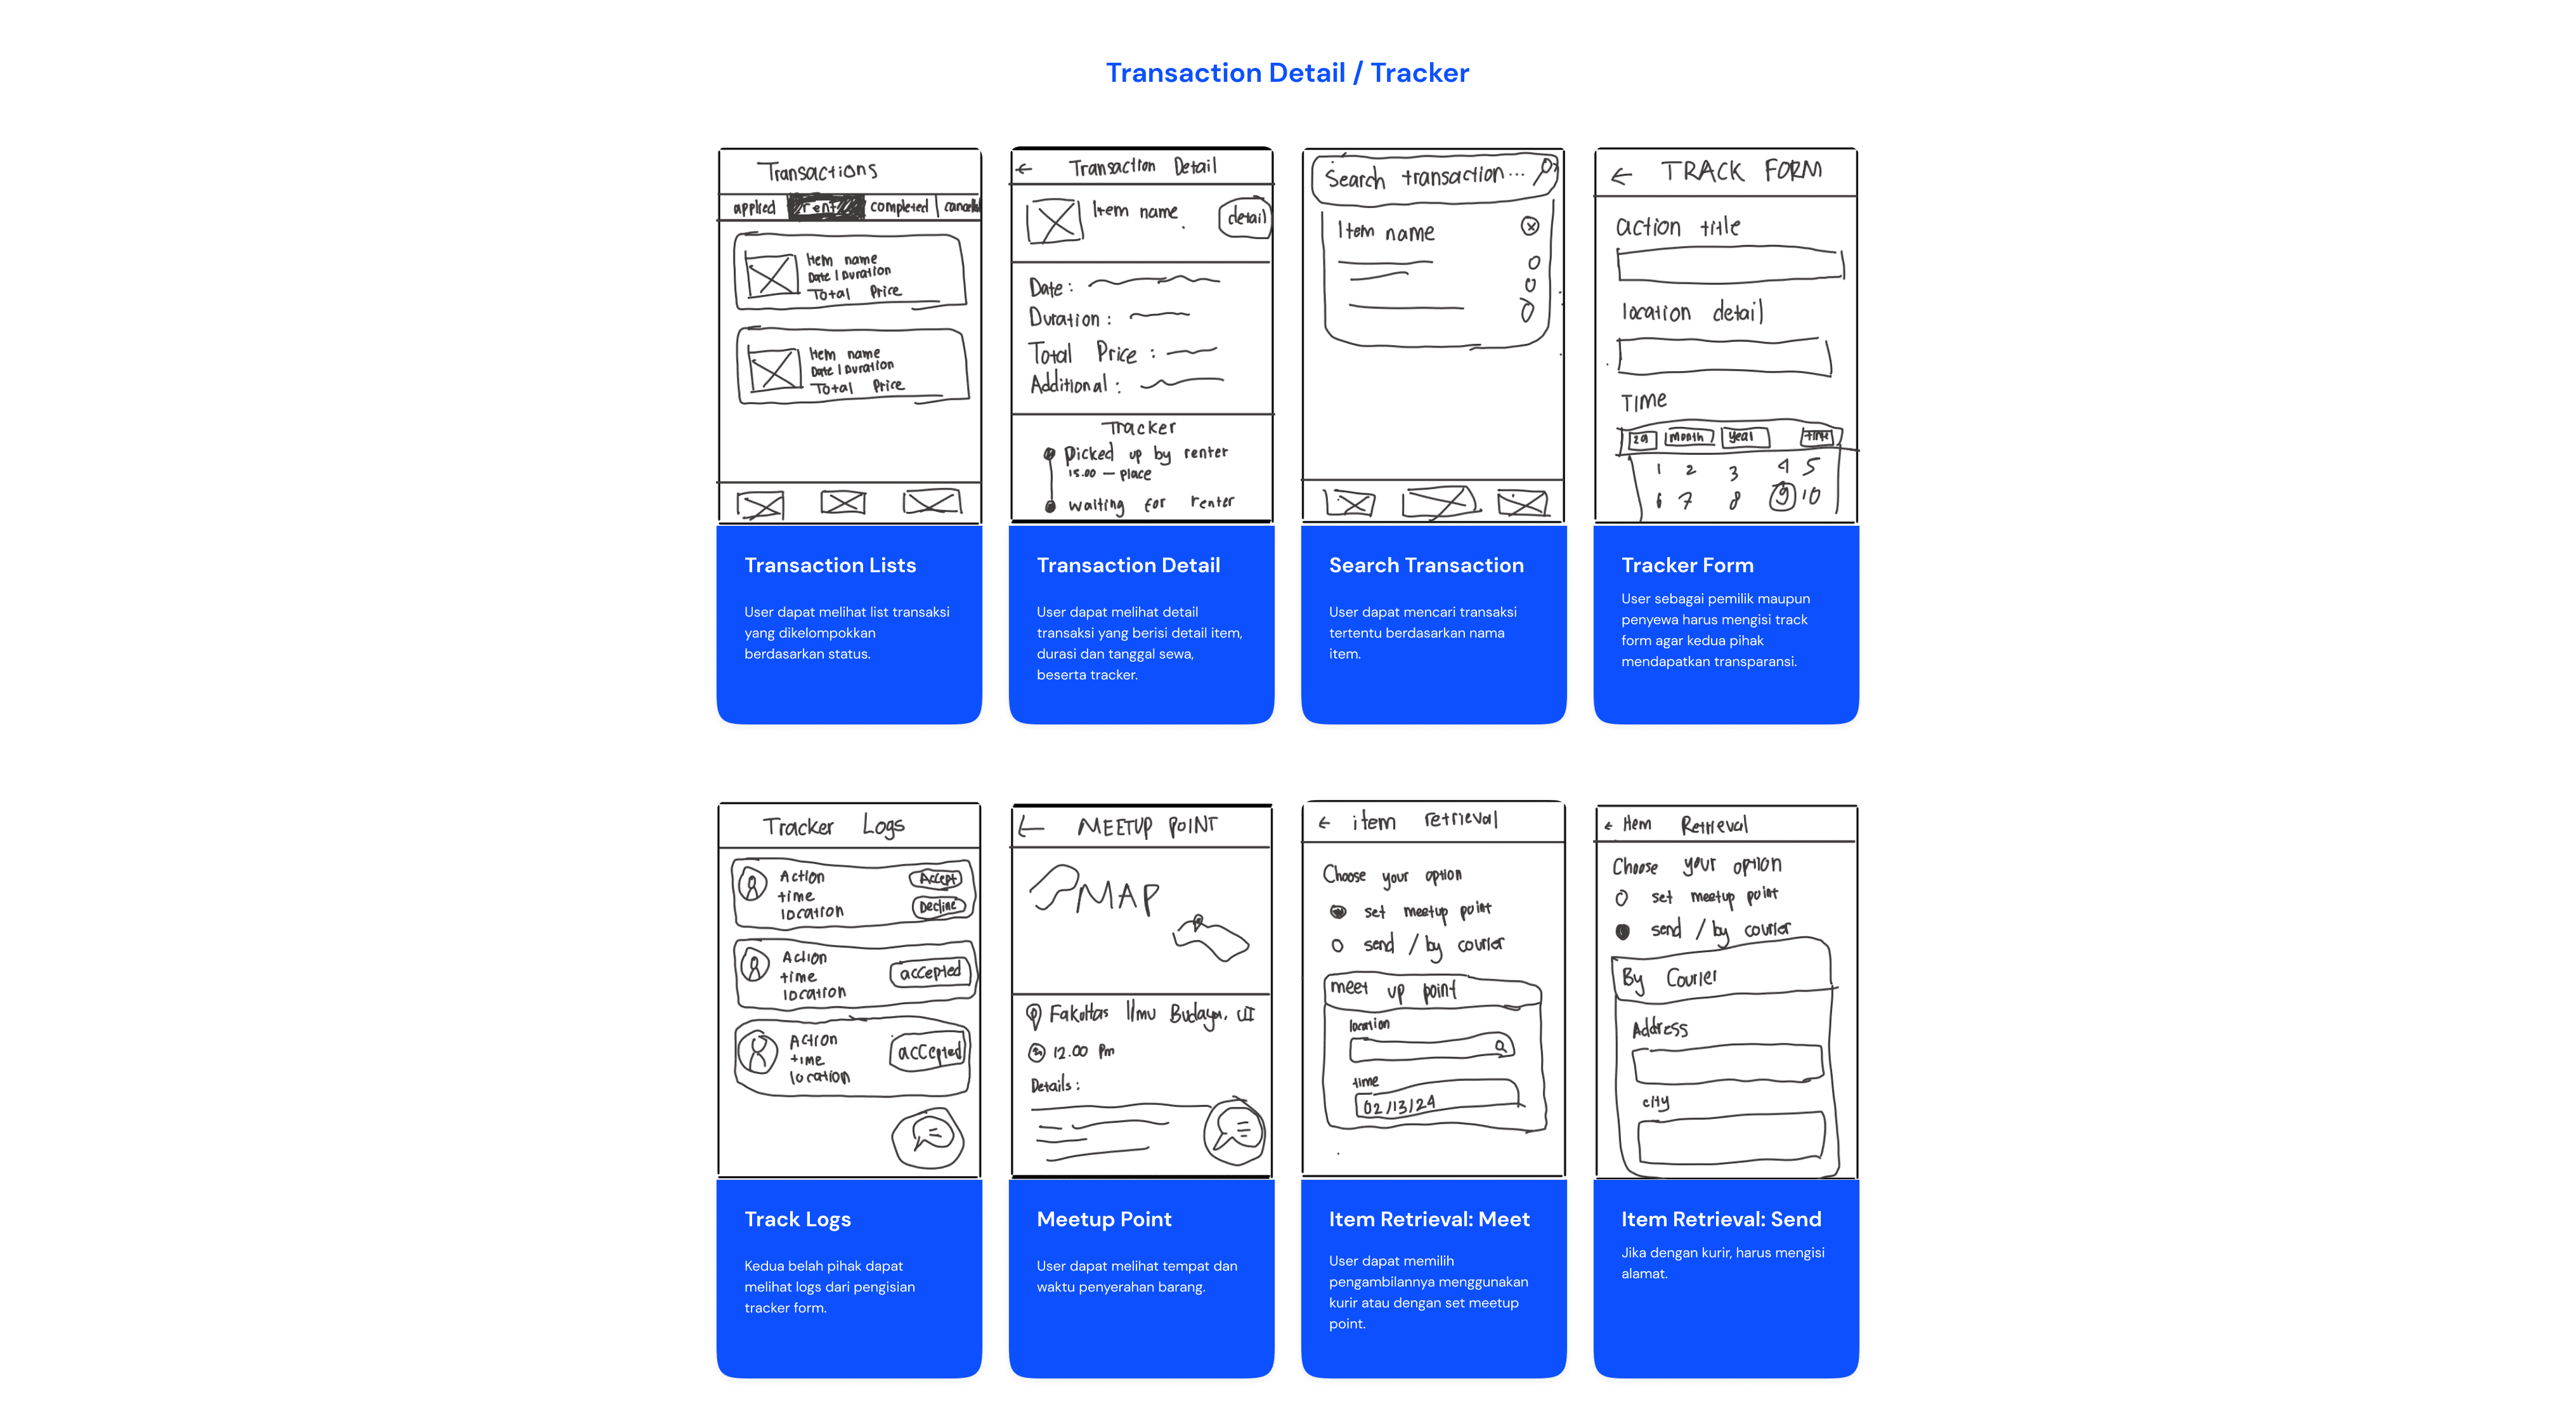 Transaction Detail / Tracker
Transactions
applied rent completed cancelled
Item name
Date | Duration
Total Price
Item name
Date | Duration
Total Price
Transaction Lists
User dapat melihat list transaksi
yang dikelompokkan
berdasarkan status.
← Transaction Detail
Item name
detail
Date :
Duration :
Total Price :
Additional :
Tracker
Picked up by renter
15.00 — place
waiting for renter
Transaction Detail
User dapat melihat detail
transaksi yang berisi detail item,
durasi dan tanggal sewa,
beserta tracker.
Search transaction...
Item name
Search Transaction
User dapat mencari transaksi
tertentu berdasarkan nama
item.
← TRACK FORM
action title
location detail
TIME
29 month year time
1 2 3 4 5
6 7 8 9 10
Tracker Form
User sebagai pemilik maupun
penyewa harus mengisi track
form agar kedua pihak
mendapatkan transparansi.
Tracker Logs
Action
time
location
Accept
Decline
Action
time
location
accepted
Action
time
location
accepted
Track Logs
Kedua belah pihak dapat
melihat logs dari pengisian
tracker form.
← MEETUP POINT
MAP
Fakultas Ilmu Budaya, UI
12.00 Pm
Details :
Meetup Point
User dapat melihat tempat dan
waktu penyerahan barang.
← item retrieval
Choose your option
set meetup point
send / by courier
meet up point
location
time
02/13/24
Item Retrieval: Meet
User dapat memilih
pengambilannya menggunakan
kurir atau dengan set meetup
point.
← Item Retrieval
Choose your option
set meetup point
send / by courier
By Courier
Address
city
Item Retrieval: Send
Jika dengan kurir, harus mengisi
alamat.